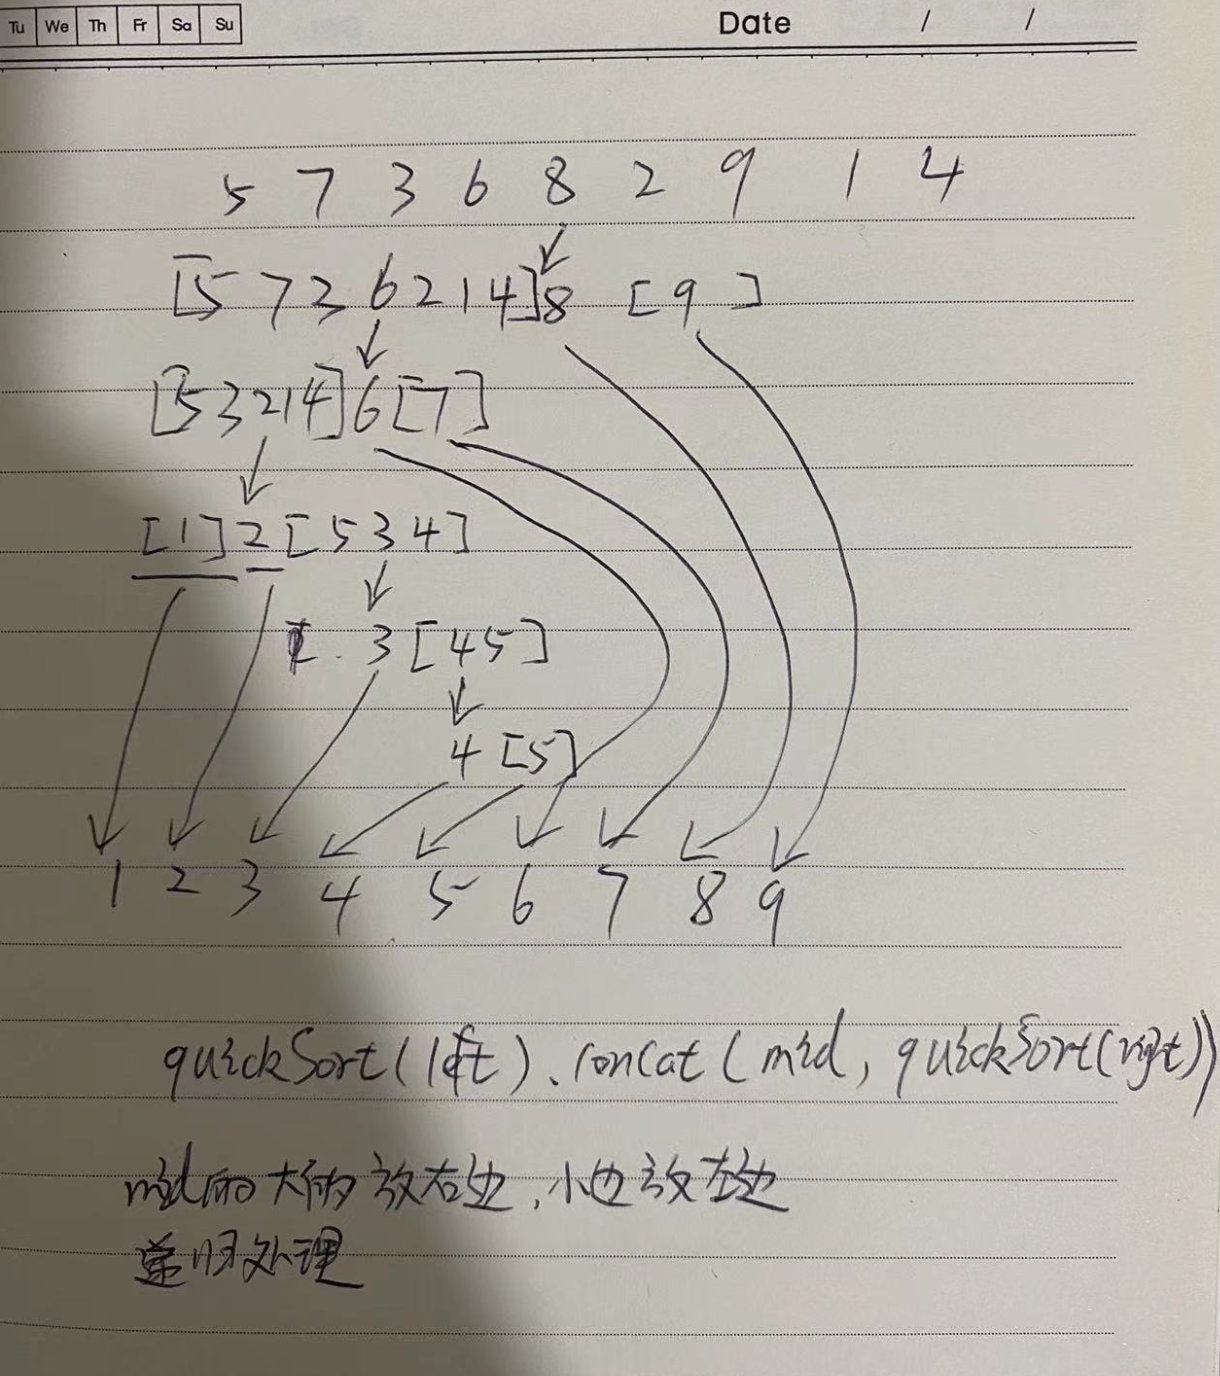 Tu We Th Fr Sa Su Date / /
5 7 3 6 8 2 9 1 4
[5 7 3 6 2 1 4] 8 [9]
[5 3 2 1 4] 6 [7]
[1] 2 [5 3 4]
[ 3 [4 5]
4 [5]
1 2 3 4 5 6 7 8 9
quickSort(left).concat(mid, quickSort(right))
mid 大的放右边,小的放左边
递归处理